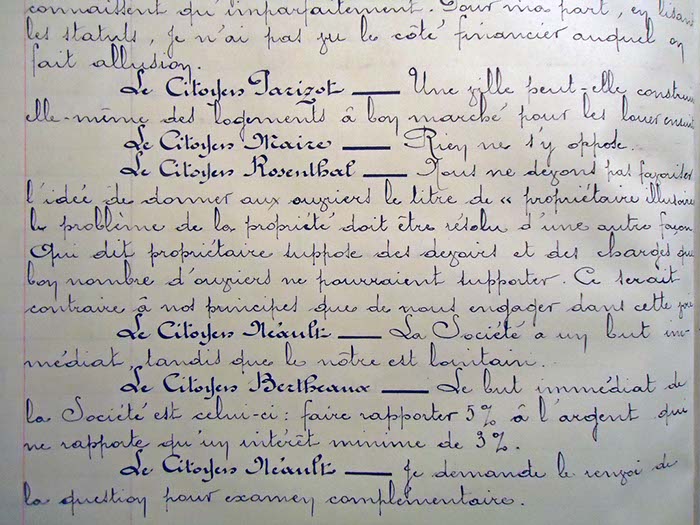 connaissent qu'imparfaitement. Pour ma part, en lisant
les statuts, je n'ai pas vu le côté financier auquel on
fait allusion.
Le Citoyen Parizot — Une ville peut-elle construire
elle-même des logements à bon marché pour les louer ensuite
Le Citoyen Maire — Rien ne s'y oppose.
Le Citoyen Rosenthal — Nous ne devons pas favoriser
l'idée de donner aux ouvriers le titre de « propriétaire illusoire
le problème de la propriété doit être résolu d'une autre façon
Qui dit propriétaire suppose des devoirs et des charges que
bon nombre d'ouvriers ne pourraient supporter. Ce serait
contraire à nos principes que de nous engager dans cette voie
Le Citoyen Néault — La Société a un but im-
médiat, tandis que le nôtre est lointain.
Le Citoyen Bertheaux — Le but immédiat de
la Société est celui-ci : faire rapporter 5% à l'argent qui
ne rapporte qu'un intérêt minime de 3%.
Le Citoyen Néault — Je demande le renvoi de
la question pour examen complémentaire.